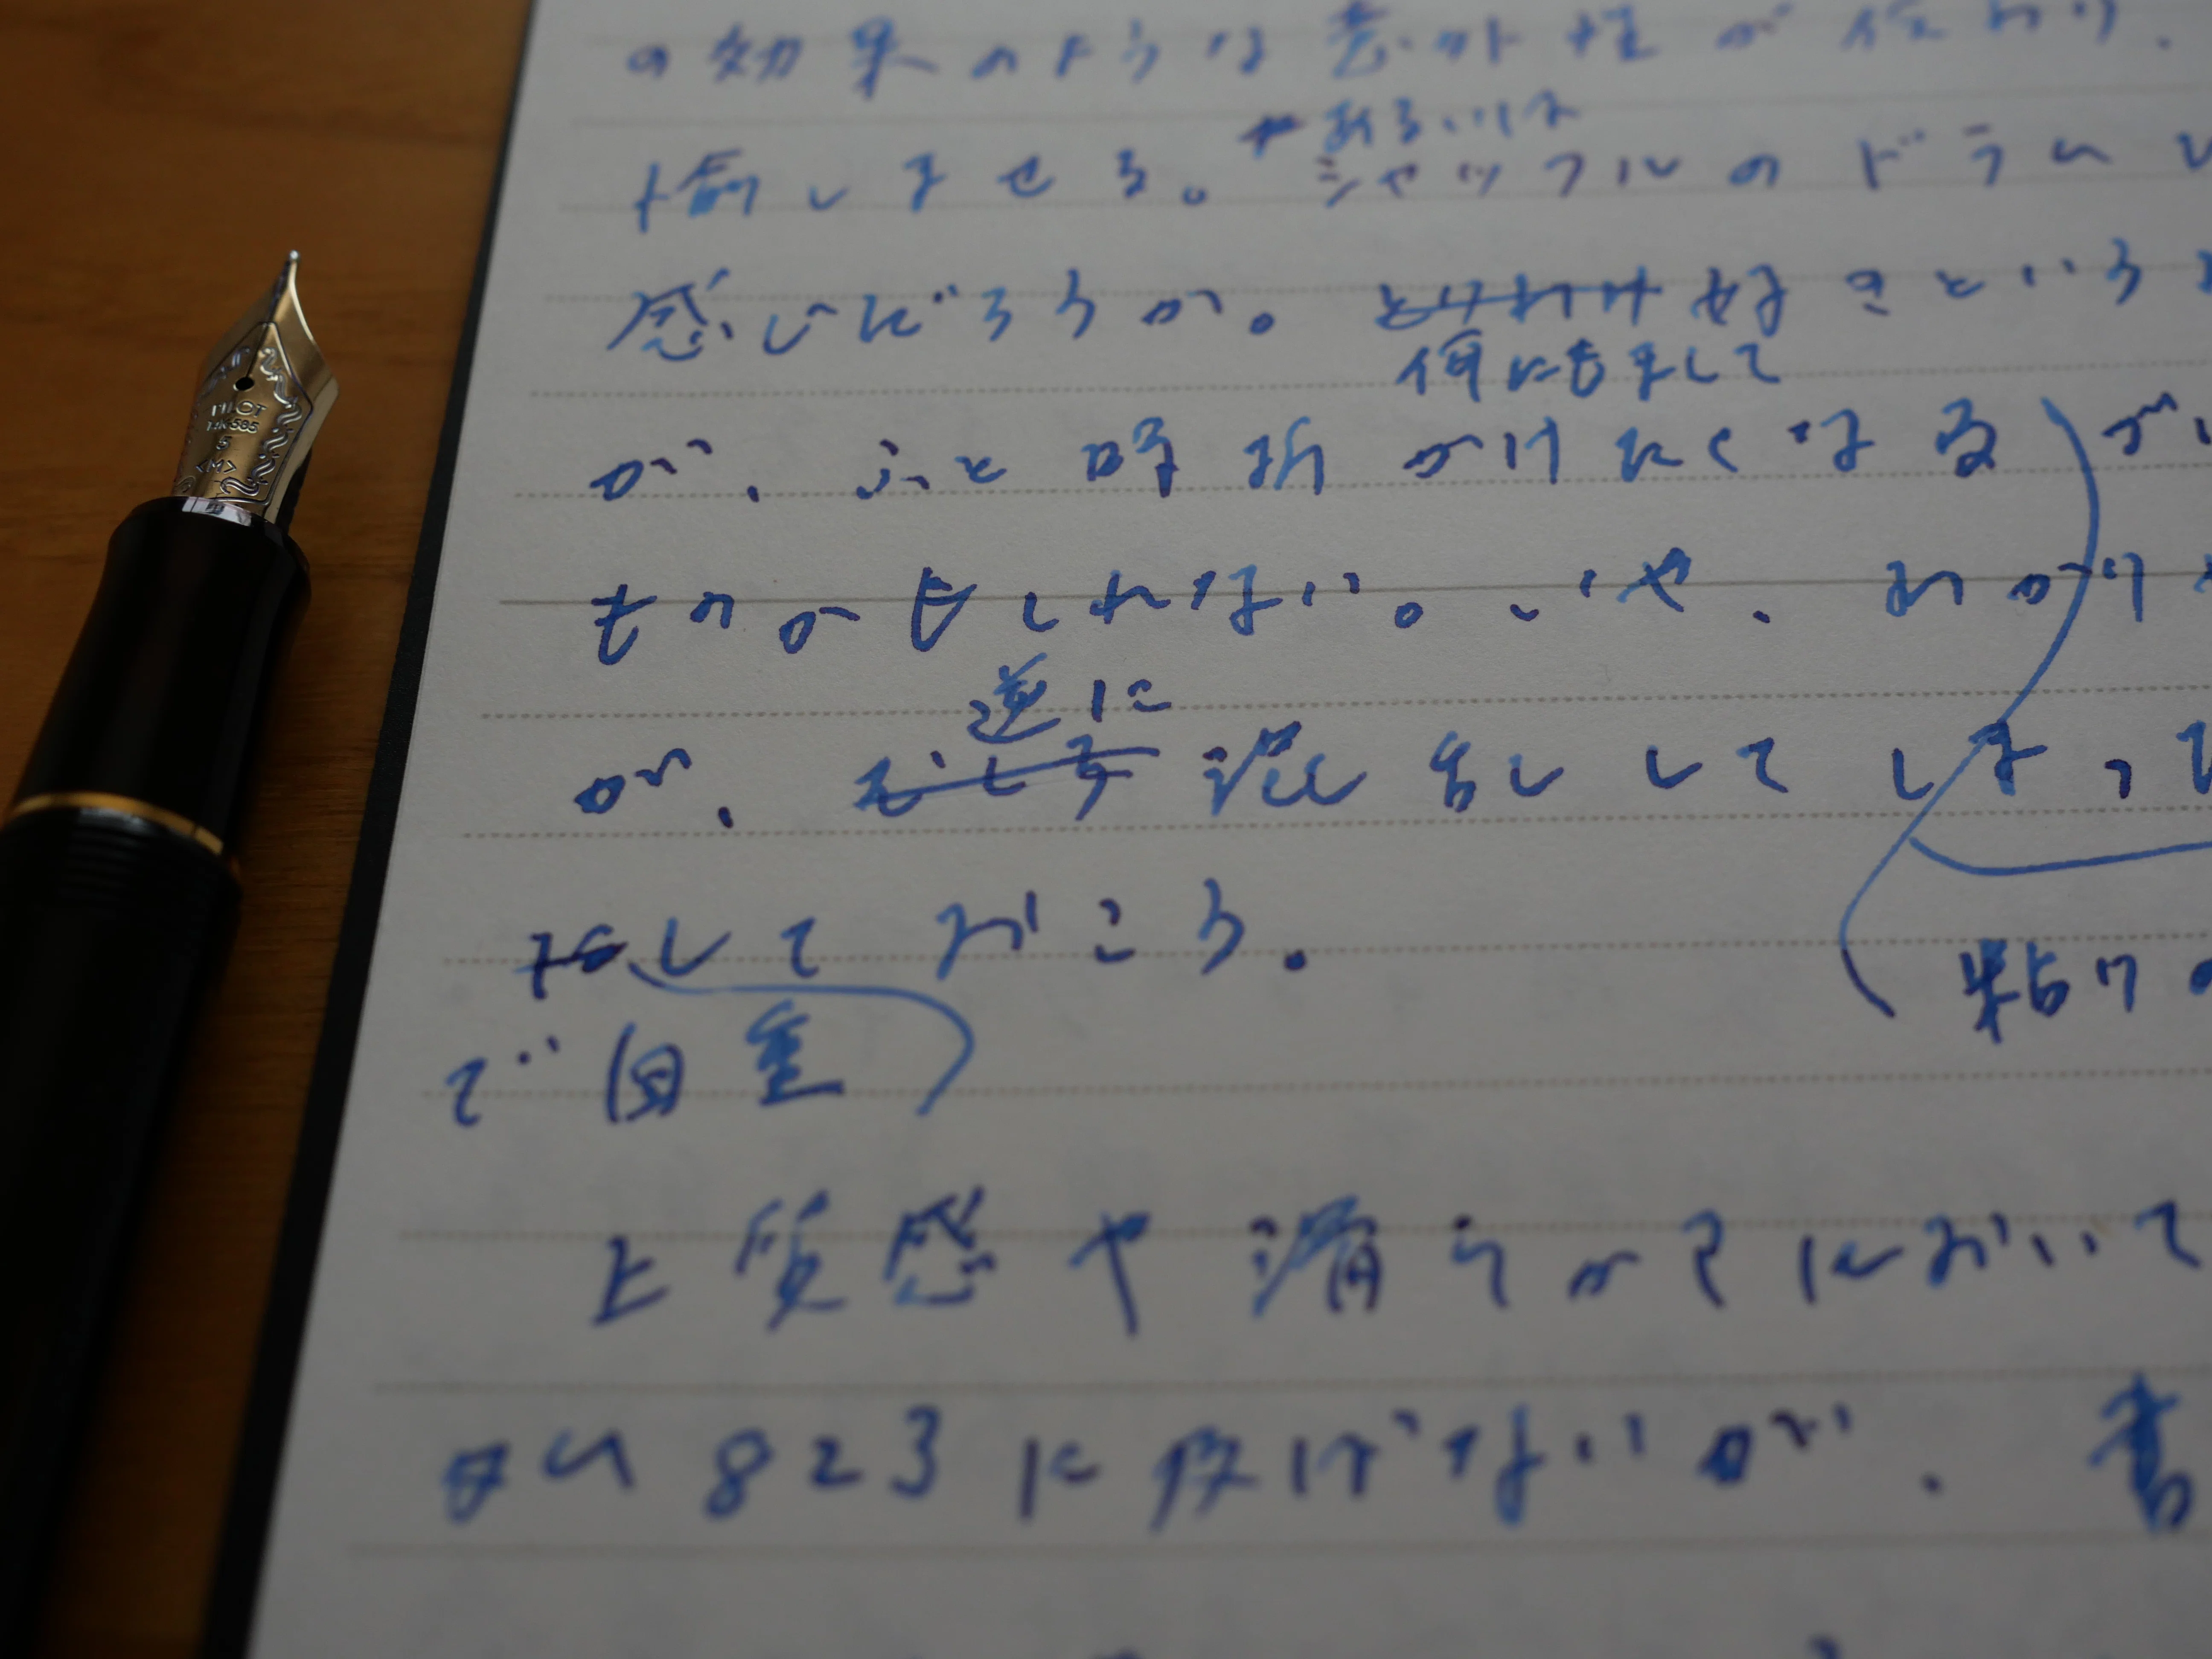 の効果のような意外性が伝わり、
あるいは
愉しませる。シャッフルのドラム
感じだろうか。とりわけ好きという
何にもまして
が、ふと時折かけたくなる
ものかもしれない。いや、わかり
逆に
が、むしろ混乱してしまって
しておこう。
で自重
粘り
上質感や滑らかさにおいて
823に及ばないが、書
PILOT
14K-585
5
<M>